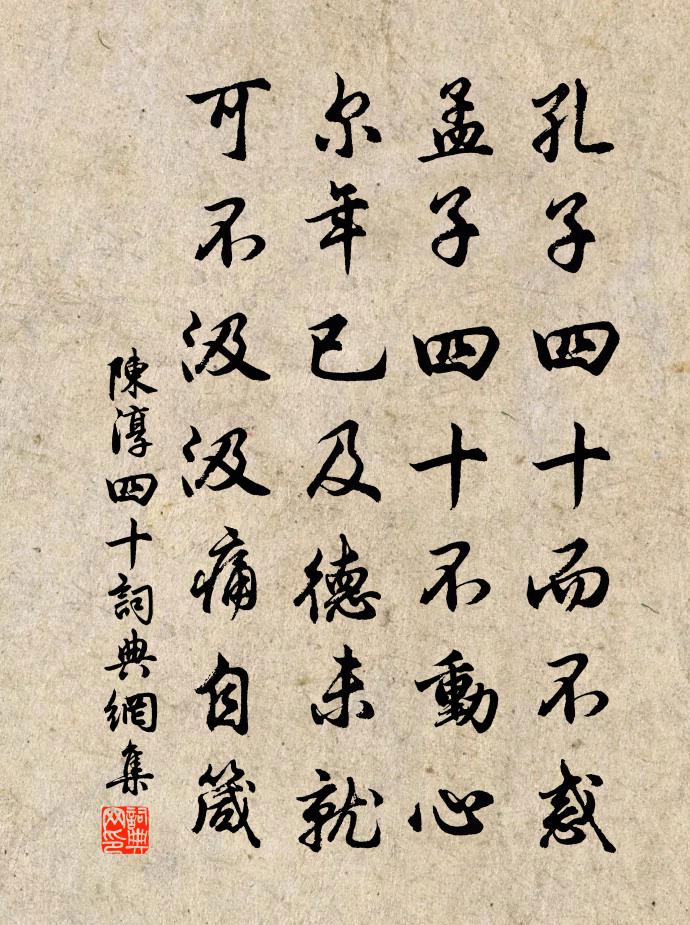 孔子四十而不惑
孟子四十不動心
尔年已及德未就
可不汲汲痛自箴
陳淳四十詞典網集
詞典
网印